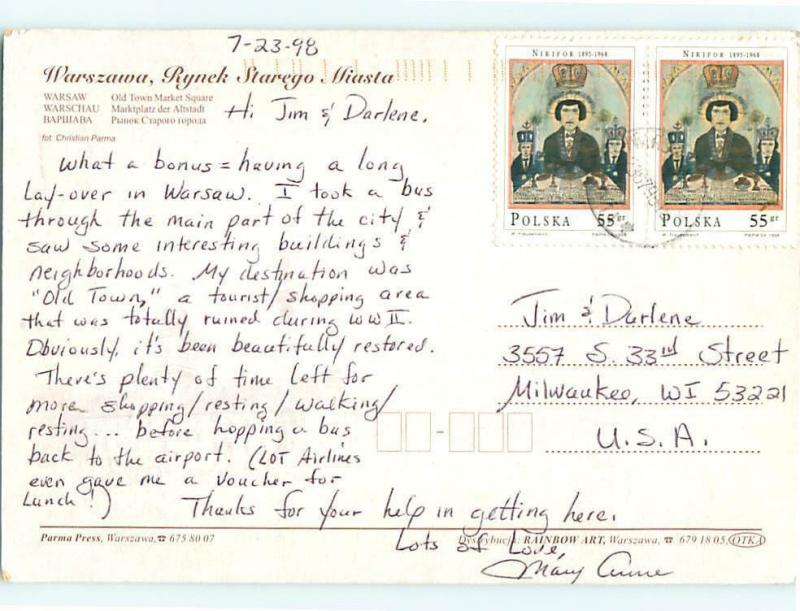 7-23-98
Warszawa, Rynek Starego Miasta
WARSAW Old Town Market Square
WARSCHAU Marktplatz der Altstadt
ВАРШАВА Рынок Старого города
fot. Christian Parma
Hi Jim & Darlene.
What a bonus = having a long
Lay-over in Warsaw. I took a bus
through the main part of the city &
saw some interesting buildings &
neighborhoods. My destination was
"Old Town," a tourist/shopping area
that was totally ruined during WWII.
Obviously, it's been beautifully restored.
There's plenty of time left for
more shopping/resting/walking/
resting... before hopping a bus
back to the airport. (LOT Airlines
even gave me a voucher for
Lunch!)
Thanks for your help in getting here.
Lots of Love,
Mary Anne
NIKIFOR 1895-1968
POLSKA 55 gr
NIKIFOR 1895-1968
POLSKA 55 gr
Jim & Darlene
3557 S. 33rd Street
Milwaukee, WI 53221
U.S.A.
Parma Press, Warszawa, ☎ 675 80 07
Dystrybucja: RAINBOW ART, Warszawa, ☎ 679 18 05, OTKA